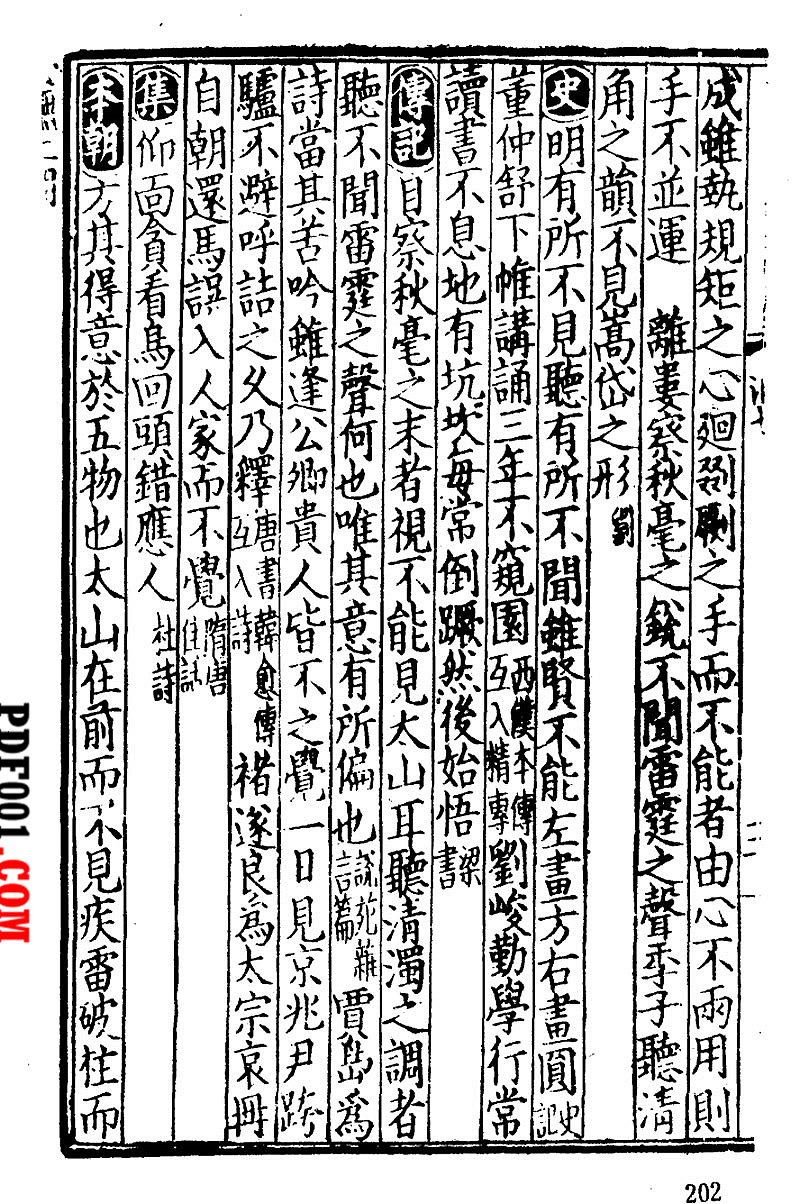 成雖執規矩之心廻剟劂之手而不能者由心不兩用則
手不並運　離婁察秋毫之銳不聞雷霆之聲季子聽清
角之韻不見嵩岱之形劉
史明有所不見聽有所不聞雖賢不能左畫方右畫圓史記
董仲舒下帷講誦三年不窺園西漢本傳互入精專劉峻勤學行常
讀書不息地有坑坎毎常倒躓然後始悟梁書
傳記目察秋毫之末者視不能見太山耳聽清濁之調者
聽不聞雷霆之聲何也唯其意有所偏也說苑雜言篇賈島為
詩當其苦吟雖逢公卿貴人皆不之覺一日見京兆尹跨
驢不避呼詰之久乃釋唐書韓愈傳互入詩褚遂良為太宗哀冊
自朝還馬誤入人家而不覺隋唐佳話
集仰面貪看鳥回頭錯應人杜詩
本朝方其得意於五物也太山在前而不見疾雷破柱而
202
PDF001.COM